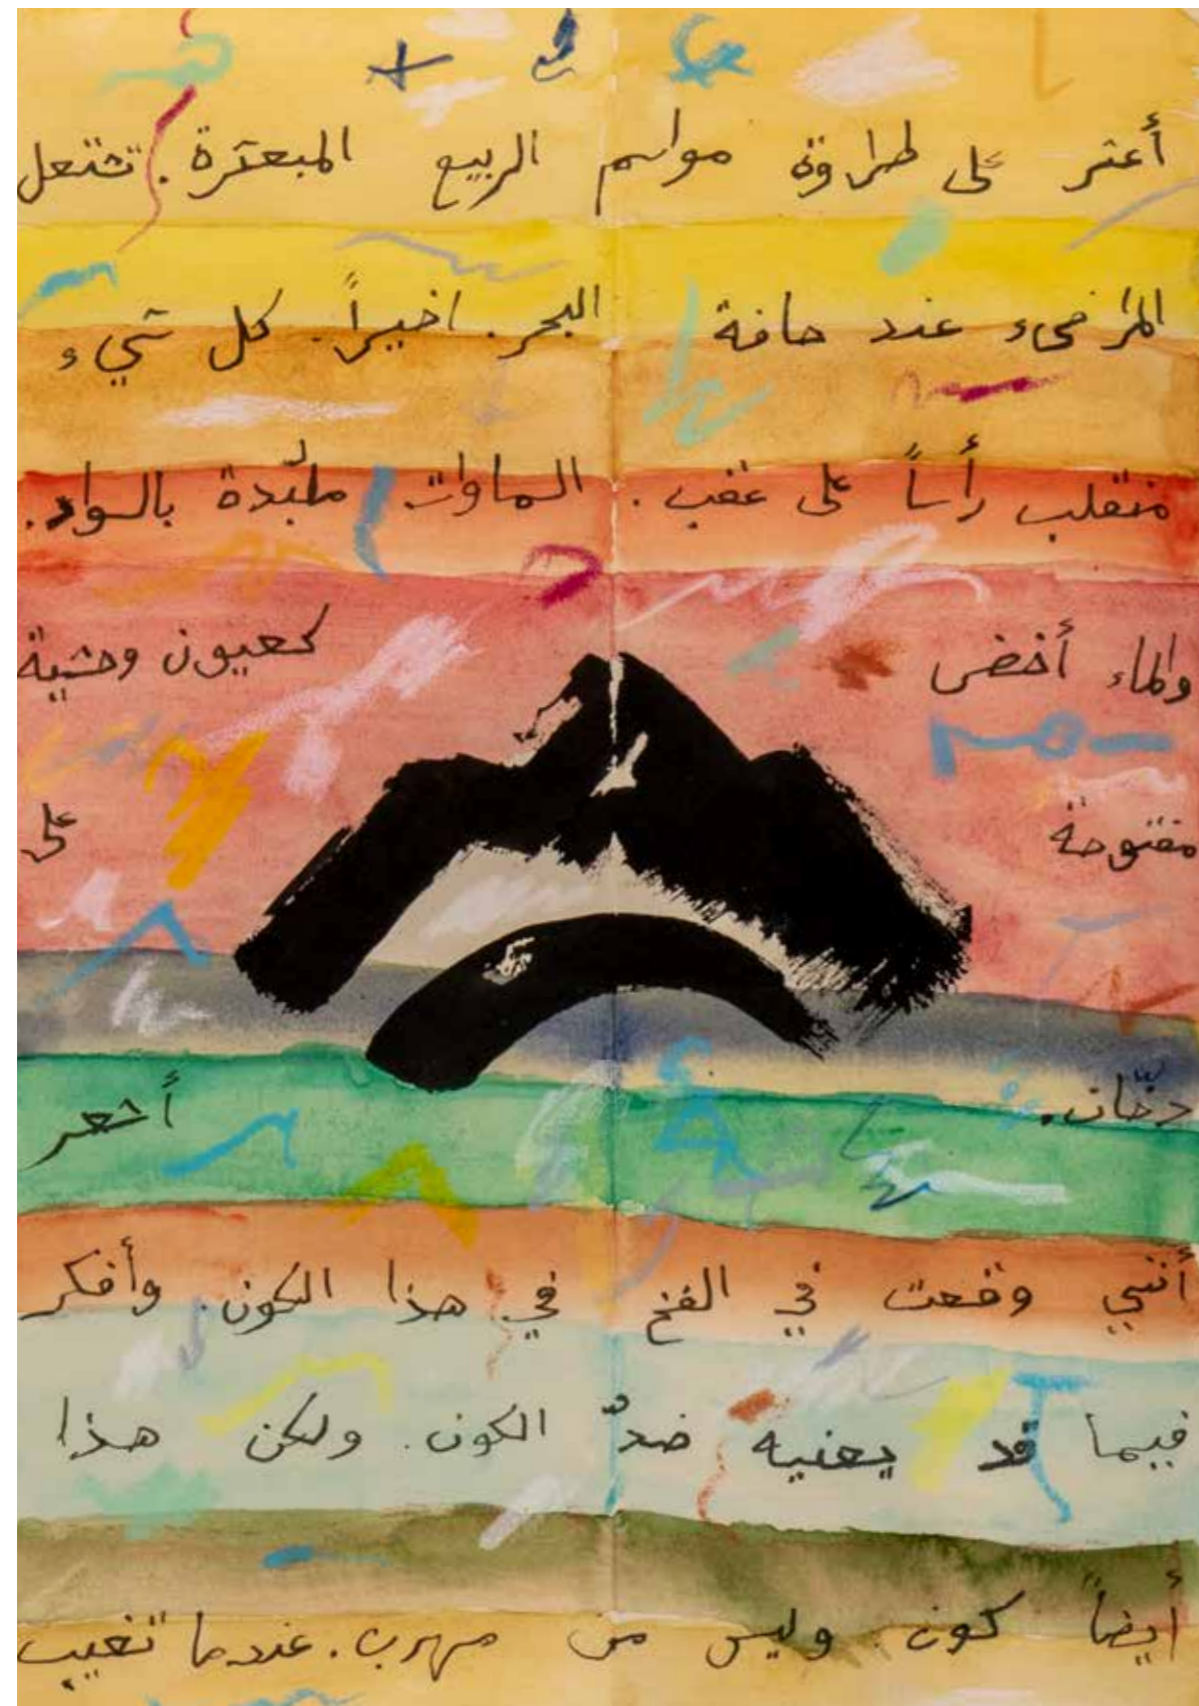 أعثر على طراوة مواسم الربيع المبعثرة. تشتعل
المرافىء عند حافة البحر. اخيراً. كل شيء
منقلب رأساً على عقب. السماوات ملبّدة بالسواد.
والماء أخضر كعيون وحشية
مفتوحة على
دخّان. أشعر
أنني وقعت في الفخ في هذا الكون. وأفكر
فيما قد يعنيه ضدّ الكون. ولكن هذا
أيضاً كون. وليس من مهرب. عندما تغيب